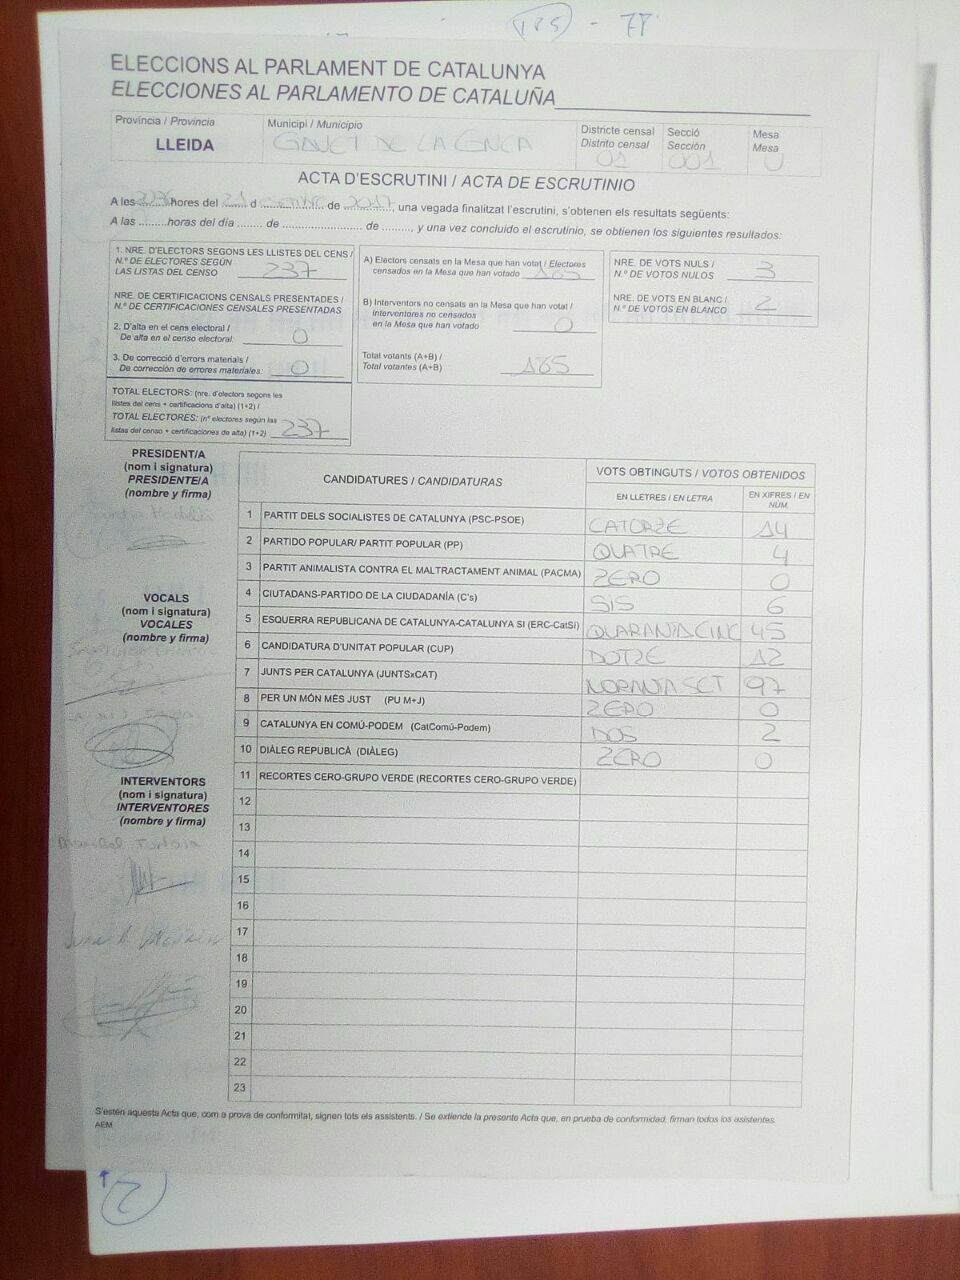 185 - 78
ELECCIONS AL PARLAMENT DE CATALUNYA
ELECCIONES AL PARLAMENTO DE CATALUÑA
Província / Provincia
LLEIDA
Municipi / Municipio
DE LA
Districte censal
Distrito censal
01
Secció
Sección
001
Mesa
Mesa
U
ACTA D'ESCRUTINI / ACTA DE ESCRUTINIO
A les hores del 21 d de 2017, una vegada finalitzat l'escrutini, s'obtenen els resultats següents:
A las ......... horas del día ........ de ........................ de ........., y una vez concluido el escrutinio, se obtienen los siguientes resultados:
1. NRE. D'ELECTORS SEGONS LES LLISTES DEL CENS /
N.º DE ELECTORES SEGÚN
LAS LISTAS DEL CENSO 237
NRE. DE CERTIFICACIONS CENSALS PRESENTADES /
N.º DE CERTIFICACIONES CENSALES PRESENTADAS
2. D'alta en el cens electoral /
De alta en el censo electoral: 0
3. De correcció d'errors materials /
De corrección de errores materiales: 0
TOTAL ELECTORS: (nre. d'electors segons les
llistes del cens + certificacions d'alta) (1+2) /
TOTAL ELECTORES: (nº electores según las
listas del censo + certificaciones de alta) (1+2) 237
A) Electors censats en la Mesa que han votat / Electores
censados en la Mesa que han votado
B) Interventors no censats en la Mesa que han votat /
Interventores no censados
en la Mesa que han votado 0
Total votants (A+B) /
Total votantes (A+B) 185
NRE. DE VOTS NULS /
N.º DE VOTOS NULOS 3
NRE. DE VOTS EN BLANC /
N.º DE VOTOS EN BLANCO 2
PRESIDENT/A
(nom i signatura)
PRESIDENTE/A
(nombre y firma)
VOCALS
(nom i signatura)
VOCALES
(nombre y firma)
INTERVENTORS
(nom i signatura)
INTERVENTORES
(nombre y firma)
CANDIDATURES / CANDIDATURAS
VOTS OBTINGUTS / VOTOS OBTENIDOS
EN LLETRES / EN LETRA
EN XIFRES / EN NÚM.
1 PARTIT DELS SOCIALISTES DE CATALUNYA (PSC-PSOE) CATORZE 14
2 PARTIDO POPULAR/ PARTIT POPULAR (PP) QUATRE 4
3 PARTIT ANIMALISTA CONTRA EL MALTRACTAMENT ANIMAL (PACMA) ZERO 0
4 CIUTADANS-PARTIDO DE LA CIUDADANÍA (C's) SIS 6
5 ESQUERRA REPUBLICANA DE CATALUNYA-CATALUNYA SÍ (ERC-CatSí) QUARANTACINC 45
6 CANDIDATURA D'UNITAT POPULAR (CUP) DOTZE 12
7 JUNTS PER CATALUNYA (JUNTSxCAT) NORANTASET 97
8 PER UN MÓN MÉS JUST (PU M+J) ZERO 0
9 CATALUNYA EN COMÚ-PODEM (CatComú-Podem) DOS 2
10 DIÀLEG REPUBLICÀ (DIÀLEG) ZERO 0
11 RECORTES CERO-GRUPO VERDE (RECORTES CERO-GRUPO VERDE)
12
13
14
15
16
17
18
19
20
21
22
23
S'estén aquesta Acta que, com a prova de conformitat, signen tots els assistents. / Se extiende la presente Acta que, en prueba de conformidad, firman todos los asistentes.
AEM
2